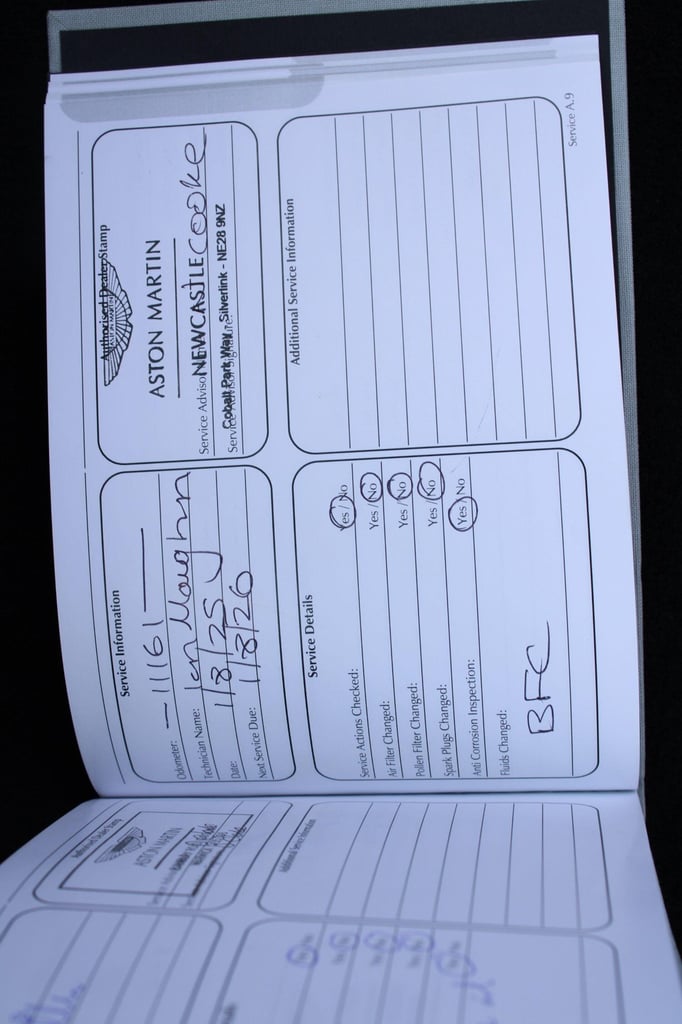 Service Information
Odometer: — 11161 —
Technician Name: Ian Maughan
Date: 1/8/25
Next Service Due: 1/8/26
Authorised Dealer Stamp
ASTON MARTIN
ASTON MARTIN
NEWCASTLE
Service Advisor Cooke
Cobalt Park Way, Silverlink - NE28 9NZ
Service Advisor Signature:
Service Details
Service Actions Checked: Yes / No
Air Filter Changed: Yes / No
Pollen Filter Changed: Yes / No
Spark Plugs Changed: Yes / No
Anti Corrosion Inspection: Yes / No
Fluids Changed:
BFC
Additional Service Information
Service A.9
Authorised Dealer Stamp
ASTON MARTIN
Additional Service Information